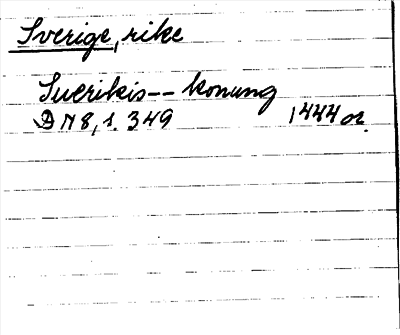 Sverige, rike
Suerikis-- konung
DN 8, s. 349 1444 or.